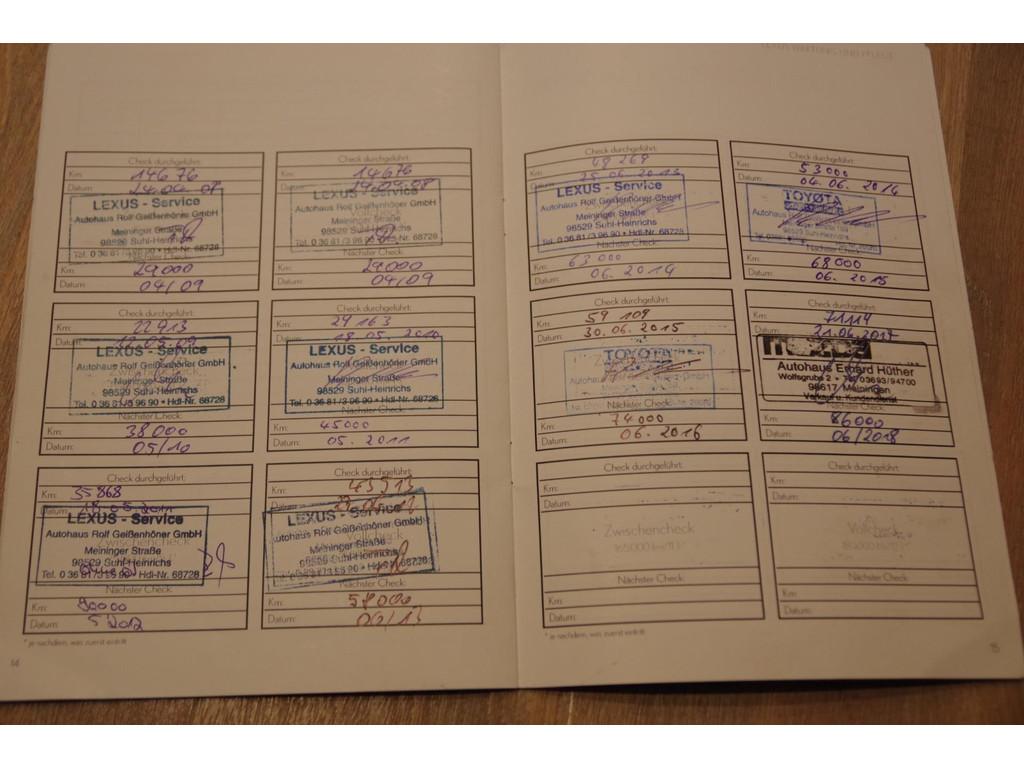 Check durchgeführt:
Km: 14676
Datum: 24.04.08
LEXUS - Service
Autohaus Rolf Geißenhöner GmbH
Meininger Straße
98529 Suhl-Heinrichs
Tel. 0 36 81 / 3 96 90 • Hdl-Nr. 68728
Nächster Check:
Km: 29000
Datum: 04/09
Check durchgeführt:
Km: 14676
Datum: 24.04.08
LEXUS - Service
Autohaus Rolf Geißenhöner GmbH
Meininger Straße
98529 Suhl-Heinrichs
Tel. 0 36 81 / 3 96 90 • Hdl-Nr. 68728
Nächster Check:
Km: 29000
Datum: 04/09
Check durchgeführt:
Km: 22913
Datum: 12.05.09
LEXUS - Service
Autohaus Rolf Geißenhöner GmbH
Meininger Straße
98529 Suhl-Heinrichs
Tel. 0 36 81 / 3 96 90 • Hdl-Nr. 68728
Nächster Check:
Km: 38000
Datum: 05/10
Check durchgeführt:
Km: 29163
Datum: 18.05.2010
LEXUS - Service
Autohaus Rolf Geißenhöner GmbH
Meininger Straße
98529 Suhl-Heinrichs
Tel. 0 36 81 / 3 96 90 • Hdl-Nr. 68728
Nächster Check:
Km: 45000
Datum: 05.2011
Check durchgeführt:
Km: 35868
Datum: 18.05.2011
LEXUS - Service
Autohaus Rolf Geißenhöner GmbH
Zwischencheck
Meininger Straße
98529 Suhl-Heinrichs
Tel. 0 36 81 / 3 96 90 • Hdl-Nr. 68728
Nächster Check:
Km: 50000
Datum: 5 2012
Check durchgeführt:
Km: 43513
Datum:
LEXUS - Service
Autohaus Rolf Geißenhöner GmbH
Vollcheck
Meininger Straße
98529 Suhl-Heinrichs
Nächster Check:
Km: 58000
Datum: 06/13
* je nachdem, was zuerst eintritt
14
Check durchgeführt:
Km: 48269
Datum: 25.06.2013
LEXUS - Service
Autohaus Rolf Geißenhöner GmbH
Meininger Straße
98529 Suhl-Heinrichs
Tel. 0 36 81 / 3 96 90 • Hdl-Nr. 68728
Nächster Check:
Km: 63000
Datum: 06.2014
Check durchgeführt:
Km: 53000
Datum: 04.06.2014
TOYOTA
Autohaus
Nächster Check:
Km: 68000
Datum: 06.2015
Check durchgeführt:
Km: 59109
Datum: 30.06.2015
TOYOTA
Nächster Check:
Km: 74000
Datum: 06.2016
Check durchgeführt:
Km: 71114
Datum: 21.06.2017
mazda
Autohaus Erhard Hüther
Wolfsgrube 2 • Tel. 03693/94700
98617 Meiningen
Verkauf u. Kundendienst
Km: 86000
Datum: 06/2018
Check durchgeführt:
Km:
Datum:
Zwischencheck
Nächster Check:
Km:
Datum:
Check durchgeführt:
Km:
Datum:
Vollcheck
Nächster Check:
Km:
Datum:
* je nachdem, was zuerst eintritt
15